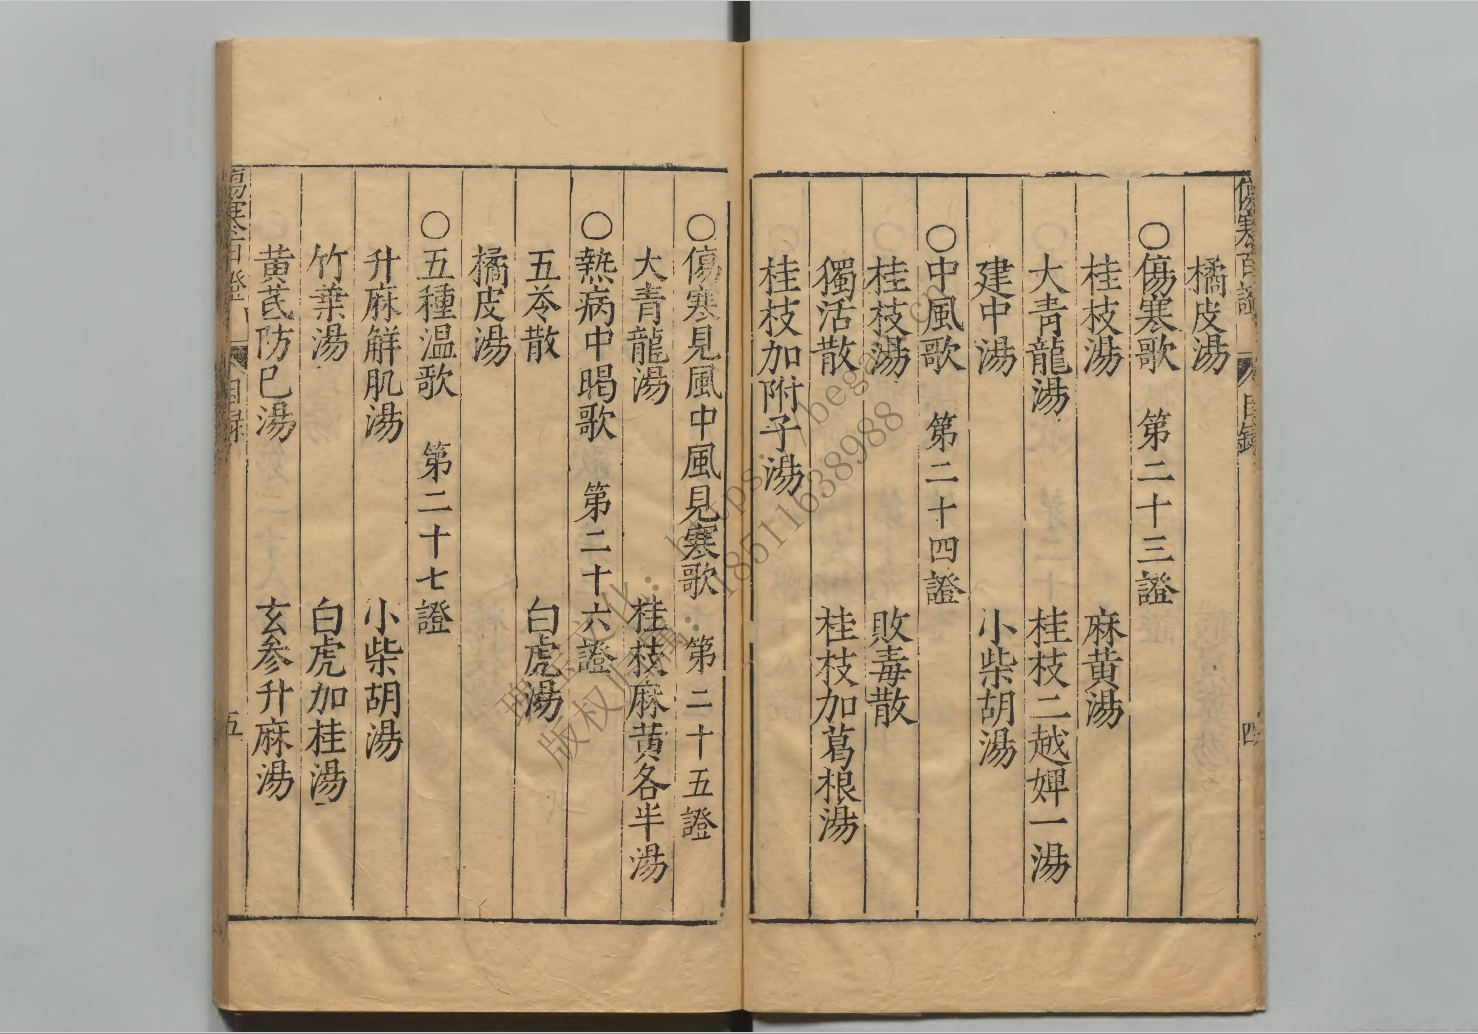 傷寒百證 目錄 四
橘皮湯
○傷寒歌 第二十三證
桂枝湯 麻黃湯
大青龍湯 桂枝二越婢一湯
建中湯 小柴胡湯
○中風歌 第二十四證
桂枝湯 敗毒散
獨活散 桂枝加葛根湯
桂枝加附子湯
○傷寒見風中風見寒歌 第二十五證
大青龍湯 桂枝麻黄各半湯
○熱病中暍歌 第二十六證
五苓散 白虎湯
橘皮湯
○五種温歌 第二十七證
升麻解肌湯 小柴胡湯
竹葉湯 白虎加桂湯
黃芪防巳湯 玄参升麻湯
傷寒百證 目錄 五
版权
18511638988